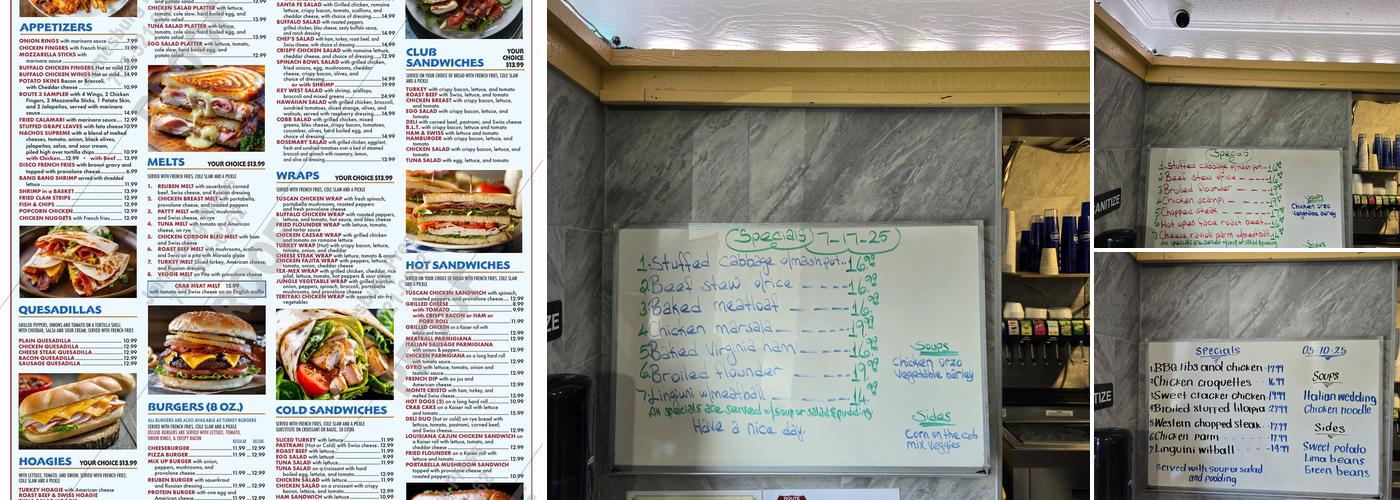 APPETIZERS
ONION RINGS with marinara sauce 7.99
CHICKEN FINGERS with French fries 11.99
MOZZARELLA STICKS with
marinara sauce 10.99
BUFFALO CHICKEN FINGERS Hot or mild 12.99
BUFFALO CHICKEN WINGS Hot or mild 14.99
POTATO SKINS Bacon or Broccoli,
with Cheddar cheese 10.99
ROUTE 3 SAMPLER with 4 Wings, 2 Chicken
Fingers, 2 Mozzarella Sticks, 1 Potato Skin,
and 2 Jalapeños, served with marinara
sauce 14.99
FRIED CALAMARI with marinara sauce 12.99
STUFFED GRAPE LEAVES with feta cheese 10.99
NACHOS SUPREME with a blend of melted
cheeses, tomato, onion, black olives,
jalapeños, salsa, and sour cream,
piled high over tortilla chips 10.99
with Chicken 12.99 • with Beef 13.99
DISCO FRENCH FRIES with brown gravy and
topped with provolone cheese 6.99
BANG BANG SHRIMP served with shredded
lettuce 11.99
SHRIMP in a BASKET 13.99
FRIED CLAM STRIPS 11.99
FISH & CHIPS 12.99
POPCORN CHICKEN 12.99
CHICKEN NUGGETS with French fries 11.99
QUESADILLAS
GRILLED PEPPERS, ONIONS AND TOMATO ON A TORTILLA SHELL
WITH CHEDDAR, SALSA AND SOUR CREAM. SERVED WITH FRENCH FRIES
PLAIN QUESADILLA 10.99
CHICKEN QUESADILLA 12.99
CHEESE STEAK QUESADILLA 12.99
BACON QUESADILLA 12.99
SAUSAGE QUESADILLA 12.99
HOAGIES YOUR CHOICE $13.99
WITH LETTUCE, TOMATO, AND ONION, SERVED WITH FRENCH FRIES,
COLE SLAW AND PICKLE
TURKEY HOAGIE with American cheese
ROAST BEEF & SWISS HOAGIE
CHICKEN SALAD PLATTER with lettuce,
tomato, cole slaw, hard boiled egg, and
potato salad 13.99
TUNA SALAD PLATTER with lettuce,
tomato, cole slaw, hard boiled egg, and
potato salad 13.99
EGG SALAD PLATTER with lettuce, tomato,
cole slaw, hard boiled egg, and
potato salad 12.99
MELTS YOUR CHOICE $13.99
SERVED WITH FRENCH FRIES, COLE SLAW AND PICKLE
1. REUBEN MELT with sauerkraut, corned
beef, Swiss cheese, and Russian dressing
2. CHICKEN BREAST MELT with portabella,
provolone cheese, roasted peppers
3. PATTY MELT with onion, mushrooms,
and Swiss cheese, on rye
4. TUNA MELT with tomato and American
cheese, on rye
5. CHICKEN CORDON BLEU MELT with ham
and Swiss cheese
6. ROAST BEEF MELT with mushrooms, scallions,
and Swiss on a pita with Marsala glaze
7. TURKEY MELT Sliced turkey, American cheese,
and Russian dressing
8. VEGGIE MELT on Pita with provolone cheese
CRAB MEAT MELT 15.99
with tomato and Swiss cheese on an English muffin
BURGERS (8 OZ.)
ALL BURGERS ARE ALSO AVAILABLE AS TURKEY BURGERS
SERVED WITH FRENCH FRIES, COLE SLAW AND A PICKLE
DELUXE BURGERS ARE SERVED WITH LETTUCE, TOMATO,
ONION RINGS, A CRISPY BACON
REGULAR DELUXE
CHEESEBURGER 11.99 12.99
PIZZA BURGER 11.99 12.99
MIX UP BURGER with onion,
peppers, mushrooms, and
provolone cheese 11.99 12.99
REUBEN BURGER with sauerkraut
and Russian dressing 11.99 12.99
PROTEIN BURGER with one egg and
SANTA FE SALAD with Grilled chicken, romaine
lettuce, crispy bacon, tomato, scallions, and
cheddar cheese, with choice of dressing 14.99
BUFFALO SALAD with roasted peppers,
grilled chicken, bleu cheese, zesty buffalo sauce,
and ranch dressing 14.99
CHEF'S SALAD with ham, turkey, roast beef, and
Swiss cheese, with choice of dressing 14.99
CRISPY CHICKEN SALAD with romaine lettuce,
cheddar cheese, and choice of dressing 14.99
SPINACH BOWL SALAD with grilled chicken,
fried onions, eggs, mushrooms, cheddar
cheese, crispy bacon, olives, and
choice of dressing 14.99
or with SHRIMP 19.99
KEY WEST SALAD with shrimp, scallops,
broccoli and mixed greens 24.99
HAWAIIAN SALAD with grilled chicken, broccoli,
sundried tomatoes, sliced orange, olives, and
walnuts, served with raspberry dressing 14.99
COBB SALAD with grilled chicken, mixed
greens, bleu cheese, crispy bacon, tomatoes,
cucumber, olives, hard boiled egg, and
choice of dressing 14.99
ROSEMARY SALAD with grilled chicken, eggplant,
fresh and sundried tomatoes over a bed of steamed
broccoli and spinach with rosemary, lemon,
and olive oil dressing 13.99
WRAPS YOUR CHOICE $13.99
SERVED WITH FRENCH FRIES, COLE SLAW AND PICKLE
TUSCAN CHICKEN WRAP with fresh spinach,
portabella mushrooms, roasted peppers
and fresh mozzarella
BUFFALO CHICKEN WRAP with roasted peppers,
lettuce, and tomato, hot sauce, and bleu cheese
FRIED FLOUNDER WRAP with lettuce, tomato,
and tartar sauce
CHICKEN CAESAR WRAP with grilled chicken
and tomato on romaine lettuce
TURKEY WRAP (Hot) with crispy bacon, lettuce,
tomato, and onion
CHEESE STEAK WRAP with lettuce, tomato & onion
CHICKEN FAJITA WRAP with peppers, onion,
lettuce, tomato, cheddar cheese
TEX-MEX WRAP with grilled chicken, cheddar, rice
pilaf, lettuce, tomato, hot peppers & sour cream
JUNGLE VEGETABLE WRAP with grilled zucchini,
onion, peppers, spinach, broccoli, portabella
mushrooms, and provolone cheese
TERIYAKI CHICKEN WRAP with assorted stir-fry
vegetables
COLD SANDWICHES
SERVED WITH FRENCH FRIES, COLE SLAW AND A PICKLE
SUBSTITUTE ON CROISSANT OR BAGEL .50 EXTRA
SLICED TURKEY with lettuce 11.99
PASTRAMI (Hot or Cold) with Swiss cheese 12.99
ROAST BEEF with lettuce 11.99
EGG SALAD with lettuce 9.99
TUNA SALAD with lettuce 11.99
TUNA SALAD on a croissant with hard
boiled egg, lettuce, and tomato 12.99
CHICKEN SALAD with lettuce 11.99
CHICKEN SALAD on a croissant with crispy
bacon, lettuce, and tomato 12.99
HAM SANDWICH with lettuce 10.99
CLUB
SANDWICHES
YOUR
CHOICE
$13.99
SERVED ON YOUR CHOICE OF BREAD WITH FRENCH FRIES, COLE SLAW
AND A PICKLE
TURKEY with crispy bacon, lettuce, and tomato
ROAST BEEF with Swiss, lettuce, and tomato
CHICKEN BREAST with crispy bacon, lettuce,
and tomato
EGG SALAD with crispy bacon, lettuce, and
tomato
DELI with corned beef, pastrami, and Swiss cheese
B.L.T. with crispy bacon, lettuce, and tomato
HAM & SWISS with lettuce and tomato
HAMBURGER with crispy bacon, lettuce, and
tomato
CHICKEN SALAD with crispy bacon, lettuce,
and tomato
TUNA SALAD with crispy bacon, lettuce, and
HOT SANDWICHES
SERVED ON YOUR CHOICE OF BREAD WITH FRENCH FRIES, COLE SLAW
AND A PICKLE
TUSCAN CHICKEN SANDWICH with spinach,
roasted peppers, and provolone cheese 12.99
GRILLED CHEESE 8.99
with TOMATO 9.99
with CRISPY BACON or HAM or
PORK ROLL 11.99
GRILLED CHICKEN on a Kaiser roll with
lettuce and tomato 12.99
MEATBALL PARMIGIANA 12.99
ITALIAN SAUSAGE PARMIGIANA
with onions & peppers 12.99
CHICKEN PARMIGIANA on a long hard roll
with tomato sauce 12.99
GYRO with lettuce, tomato, onion, and
tzatziki sauce 12.99
FRENCH DIP with au jus and
American cheese 12.99
MONTE CRISTO with ham, turkey, and
melted Swiss cheese 13.99
HOT DOGS (2) on a long hard roll 10.99
CRAB CAKE on a Kaiser roll with lettuce
and tomato 15.99
DELI DUO (hot or cold) on rye bread with
pastrami, corned beef, and Swiss
cheese 12.99
WESTERN with lettuce and tomato 10.99
LOUISIANA CAJUN CHICKEN SANDWICH on
a Kaiser roll with lettuce, tomato, and
cheddar cheese 12.99
FRIED FLOUNDER on a Kaiser roll with
lettuce and tomato 12.99
PORTABELLA MUSHROOM SANDWICH
topped with provolone cheese and
roasted peppers 12.99
Specials 7-17-25
1. Stuffed Cabbage o/mash pot... 16.99
2 Beef stew o/rice 16.99
3 Baked meatloaf 16.99
4 Chicken marsala 19.99
5 Baked Virginia ham 16.99
6 Broiled flounder 19.99
7 Linguni w/meatball 14.99
All specials are served w/soup or salad & pudding
Have a nice day.
Soups
Chicken orzo
Vegetable barley
Sides
Corn on the cob
mix Veggies
Specials
1 Stuffed cabbage o/mash pot
2 Beef stew o/rice
3 Broiled flounder
4 Chicken scampi
5 Chopped steak
6 Hot open face roast beef
7 Cheese ravioli parm w/meatball
All specials are served w/soup or salad & pudding
Soups
Chicken orzo
Vegetable barley
Sides
ANITIZE
Specials 05-10-25
1 BBQ ribs and chicken 17.99
2 Chicken croquettes 16.99
3 Sweet cracker chicken 19.99
4 Broiled stuffed tilapia 27.99
5 Western chopped steak 17.99
6 Chicken parm 17.99
7 Linguini w/t ball 14.99
Served with soup or salad
and pudding
Soups
Italian wedding
Chicken noodle
Sides
Sweet potato
Lima beans
Green beans